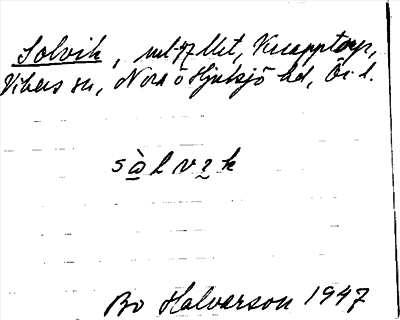 Solvik, nr 47 Mit, Knapptorp,
Vikers sn, Nora o Hjulsjö hd, Ör l.
sὰlvk
Bo Halvarson 1947